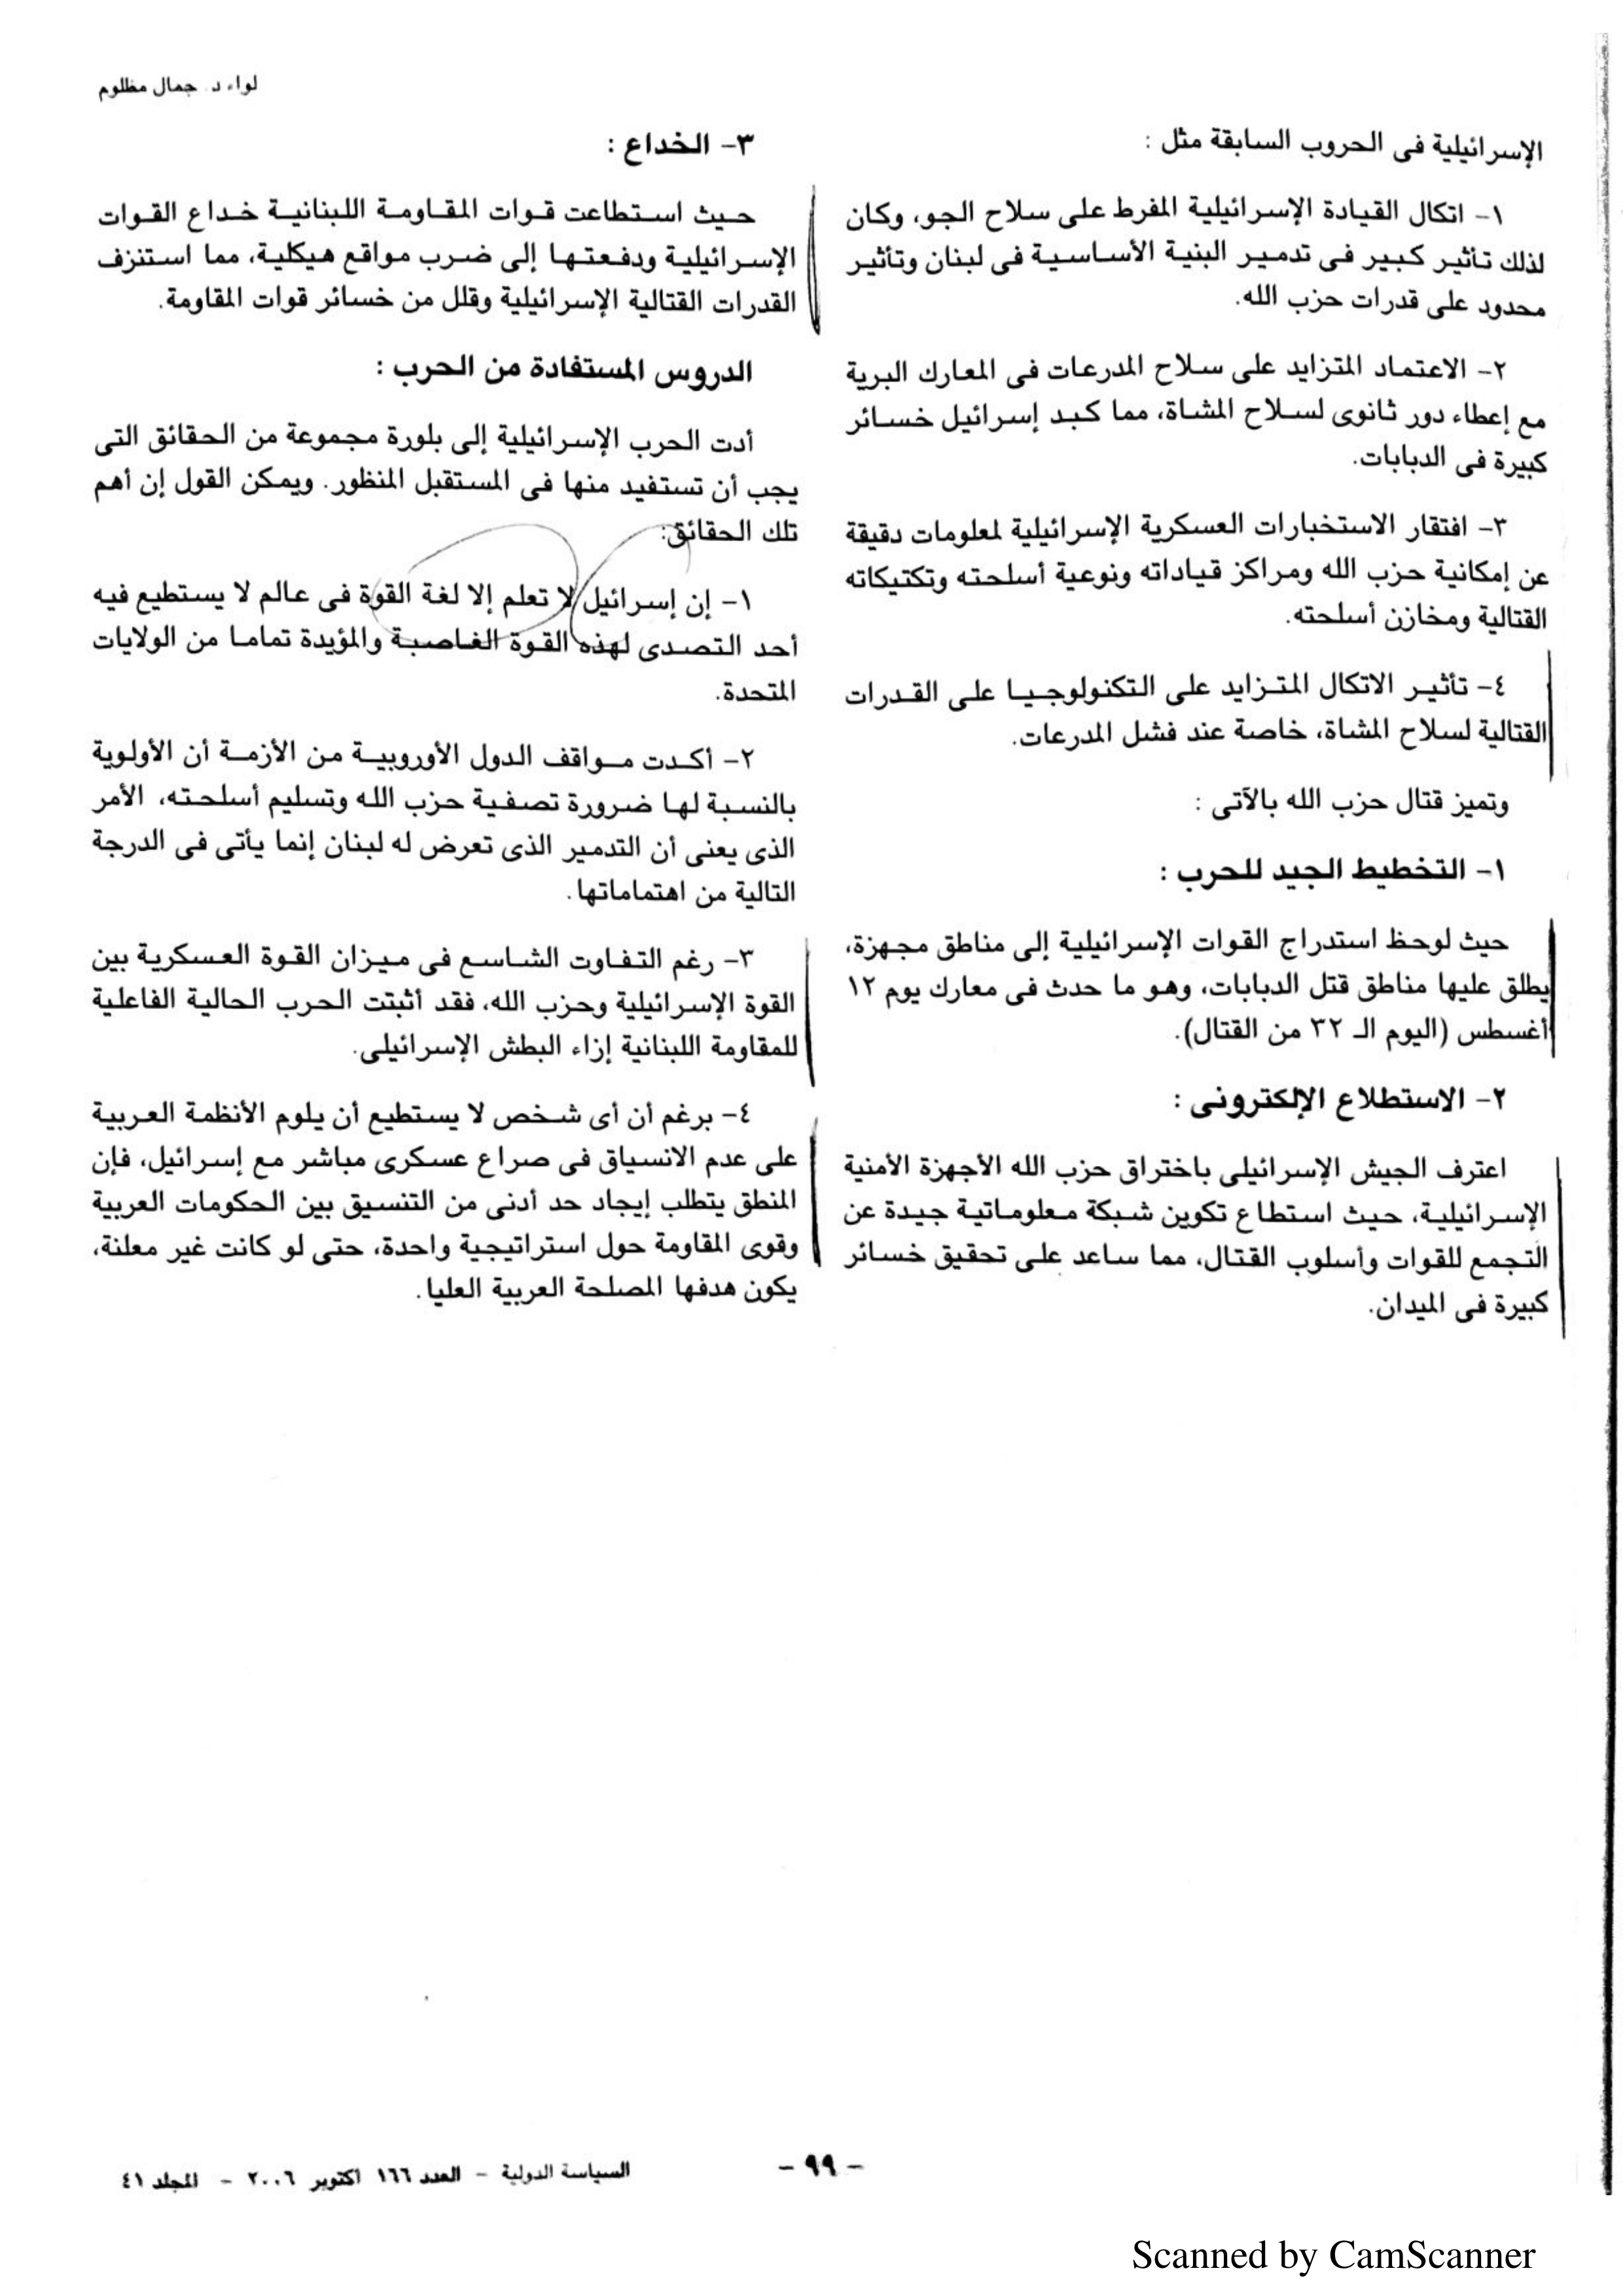 لواء د. جمال مظلوم
الإسرائيلية فى الحروب السابقة مثل :
١- اتكال القيادة الإسرائيلية المفرط على سلاح الجو، وكان
لذلك تأثير كبير فى تدمير البنية الأساسية فى لبنان وتأثير
محدود على قدرات حزب الله.
٢- الاعتماد المتزايد على سلاح المدرعات فى المعارك البرية
مع إعطاء دور ثانوى لسلاح المشاة، مما كبد إسرائيل خسائر
كبيرة فى الدبابات.
٣- افتقار الاستخبارات العسكرية الإسرائيلية لمعلومات دقيقة
عن إمكانية حزب الله ومراكز قياداته ونوعية أسلحته وتكتيكاته
القتالية ومخازن أسلحته.
٤- تأثير الاتكال المتزايد على التكنولوجيا على القدرات
القتالية لسلاح المشاة، خاصة عند فشل المدرعات.
وتميز قتال حزب الله بالآتى :
١- التخطيط الجيد للحرب :
حيث لوحظ استدراج القوات الإسرائيلية إلى مناطق مجهزة،
يطلق عليها مناطق قتل الدبابات، وهو ما حدث فى معارك يوم ١٢
أغسطس (اليوم الـ ٣٢ من القتال).
٢- الاستطلاع الإلكترونى :
اعترف الجيش الإسرائيلى باختراق حزب الله الأجهزة الأمنية
الإسرائيلية، حيث استطاع تكوين شبكة معلوماتية جيدة عن
التجمع للقوات وأسلوب القتال، مما ساعد على تحقيق خسائر
كبيرة فى الميدان.
٣- الخداع :
حيث استطاعت قوات المقاومة اللبنانية خداع القوات
الإسرائيلية ودفعتها إلى ضرب مواقع هيكلية، مما استنزف
القدرات القتالية الإسرائيلية وقلل من خسائر قوات المقاومة.
الدروس المستفادة من الحرب :
أدت الحرب الإسرائيلية إلى بلورة مجموعة من الحقائق التى
يجب أن تستفيد منها فى المستقبل المنظور. ويمكن القول إن أهم
تلك الحقائق:
١- إن إسرائيل لا تعلم إلا لغة القوة فى عالم لا يستطيع فيه
أحد التصدى لهذه القوة الغاصبة والمؤيدة تماما من الولايات
المتحدة.
٢- أكدت مواقف الدول الأوروبية من الأزمة أن الأولوية
بالنسبة لها ضرورة تصفية حزب الله وتسليم أسلحته، الأمر
الذى يعنى أن التدمير الذى تعرض له لبنان إنما يأتى فى الدرجة
التالية من اهتماماتها.
٣- رغم التفاوت الشاسع فى ميزان القوة العسكرية بين
القوة الإسرائيلية وحزب الله، فقد أثبتت الحرب الحالية الفاعلية
للمقاومة اللبنانية إزاء البطش الإسرائيلى.
٤- برغم أن أى شخص لا يستطيع أن يلوم الأنظمة العربية
على عدم الانسياق فى صراع عسكرى مباشر مع إسرائيل، فإن
المنطق يتطلب إيجاد حد أدنى من التنسيق بين الحكومات العربية
وقوى المقاومة حول استراتيجية واحدة، حتى لو كانت غير معلنة،
يكون هدفها المصلحة العربية العليا.
- ٩٩ -
السياسة الدولية - العدد ١٦٦ اكتوبر ٢٠٠٦ - المجلد ٤١
Scanned by CamScanner